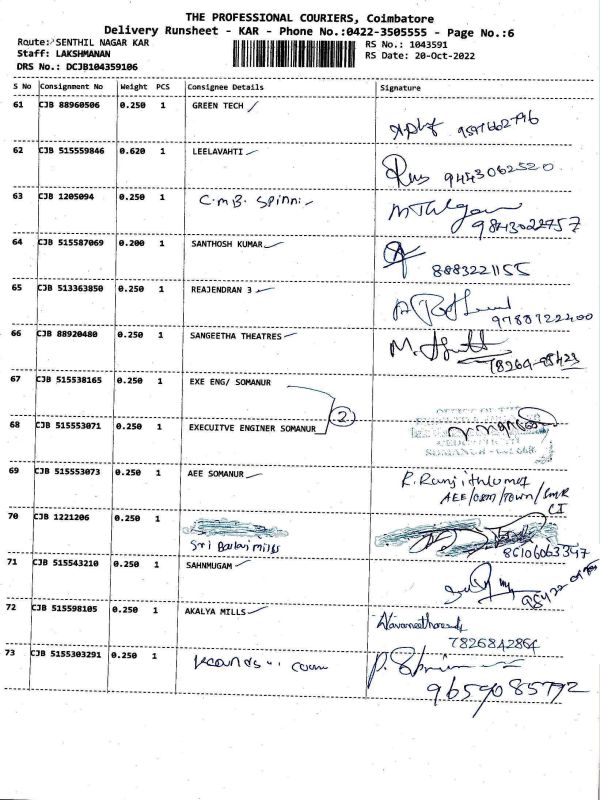 THE PROFESSIONAL COURIERS, Coimbatore
Delivery Runsheet - KAR - Phone No.:0422-3505555 - Page No.:6
Route: SENTHIL NAGAR KAR
RS No.: 1043591
Staff: LAKSHMANAN
RS Date: 20-Oct-2022
DRS No.: DCJB104359106
S No Consignment No Weight PCS Consignee Details Signature
61 CJB 88960506 0.250 1 GREEN TECH
62 CJB 515559846 0.620 1 LEELAVAHTI
9443062520
63 CJB 1205094 0.250 1 C.M.B. Spinni
9843022757
64 CJB 515587069 0.200 1 SANTHOSH KUMAR
8883221155
65 CJB 513363850 0.250 1 REAJENDRAN 3
66 CJB 88920480 0.250 1 SANGEETHA THEATRES
67 CJB 515538165 0.250 1 EXE ENG/ SOMANUR
2
68 CJB 515553071 0.250 1 EXECUITVE ENGINER SOMANUR
OFFICE OF THE
SOMANUR
69 CJB 515553073 0.250 1 AEE SOMANUR R. Ranjithkumar
AEE/O&M/Town/SMR
70 CJB 1221206 0.250 1
Sri Balaji mills 8610663347
71 CJB 515543210 0.250 1 SAHNMUGAM
72 CJB 515598105 0.250 1 AKALYA MILLS
7826842864
73 CJB 5155303291 0.250 1
9659085772